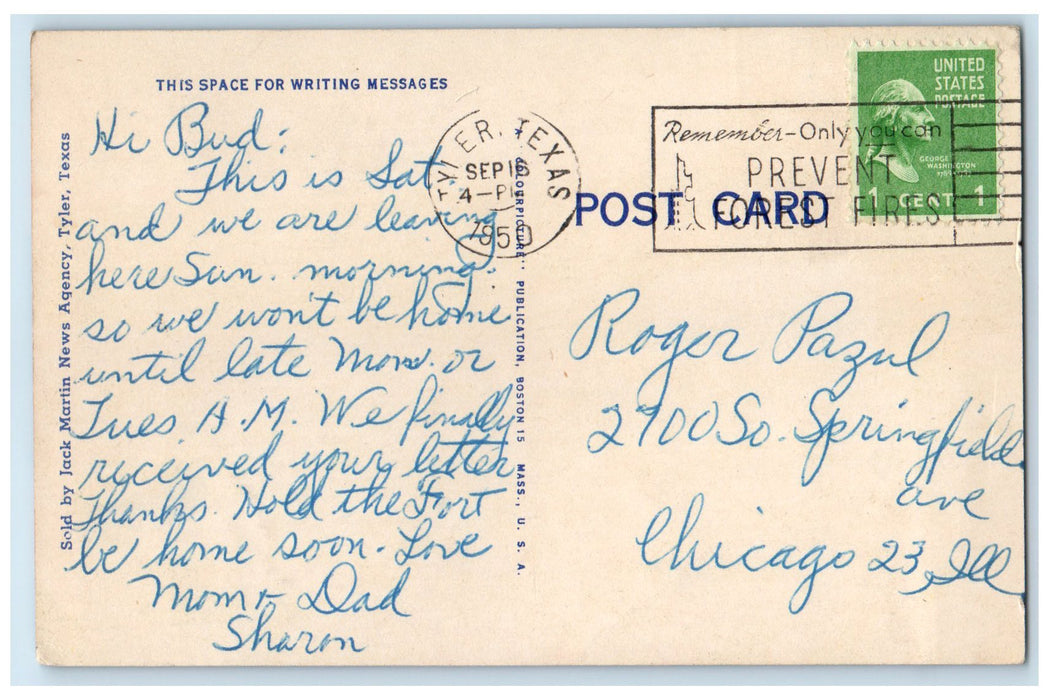 THIS SPACE FOR WRITING MESSAGES
Hi Bud:
This is Sat
and we are leaving
here Sun. morning.
so we won't be home
until late Mon. or
Tues. A.M. We finally
received your letter
Thanks. Hold the Fort
be home soon - Love
Mom + Dad
Sharon
Sold by Jack Martin News Agency, Tyler, Texas
"COLOURPICTURE" PUBLICATION, BOSTON 15 MASS., U. S. A.
TYLER, TEXAS
SEP 16
4-PM
1950
Remember-Only you can
PREVENT
FOREST FIRES
UNITED
STATES
POSTAGE
GEORGE
WASHINGTON
1 CENT 1
POST CARD
Roger Pazul
2700 So. Springfield
ave
Chicago 23, Ill